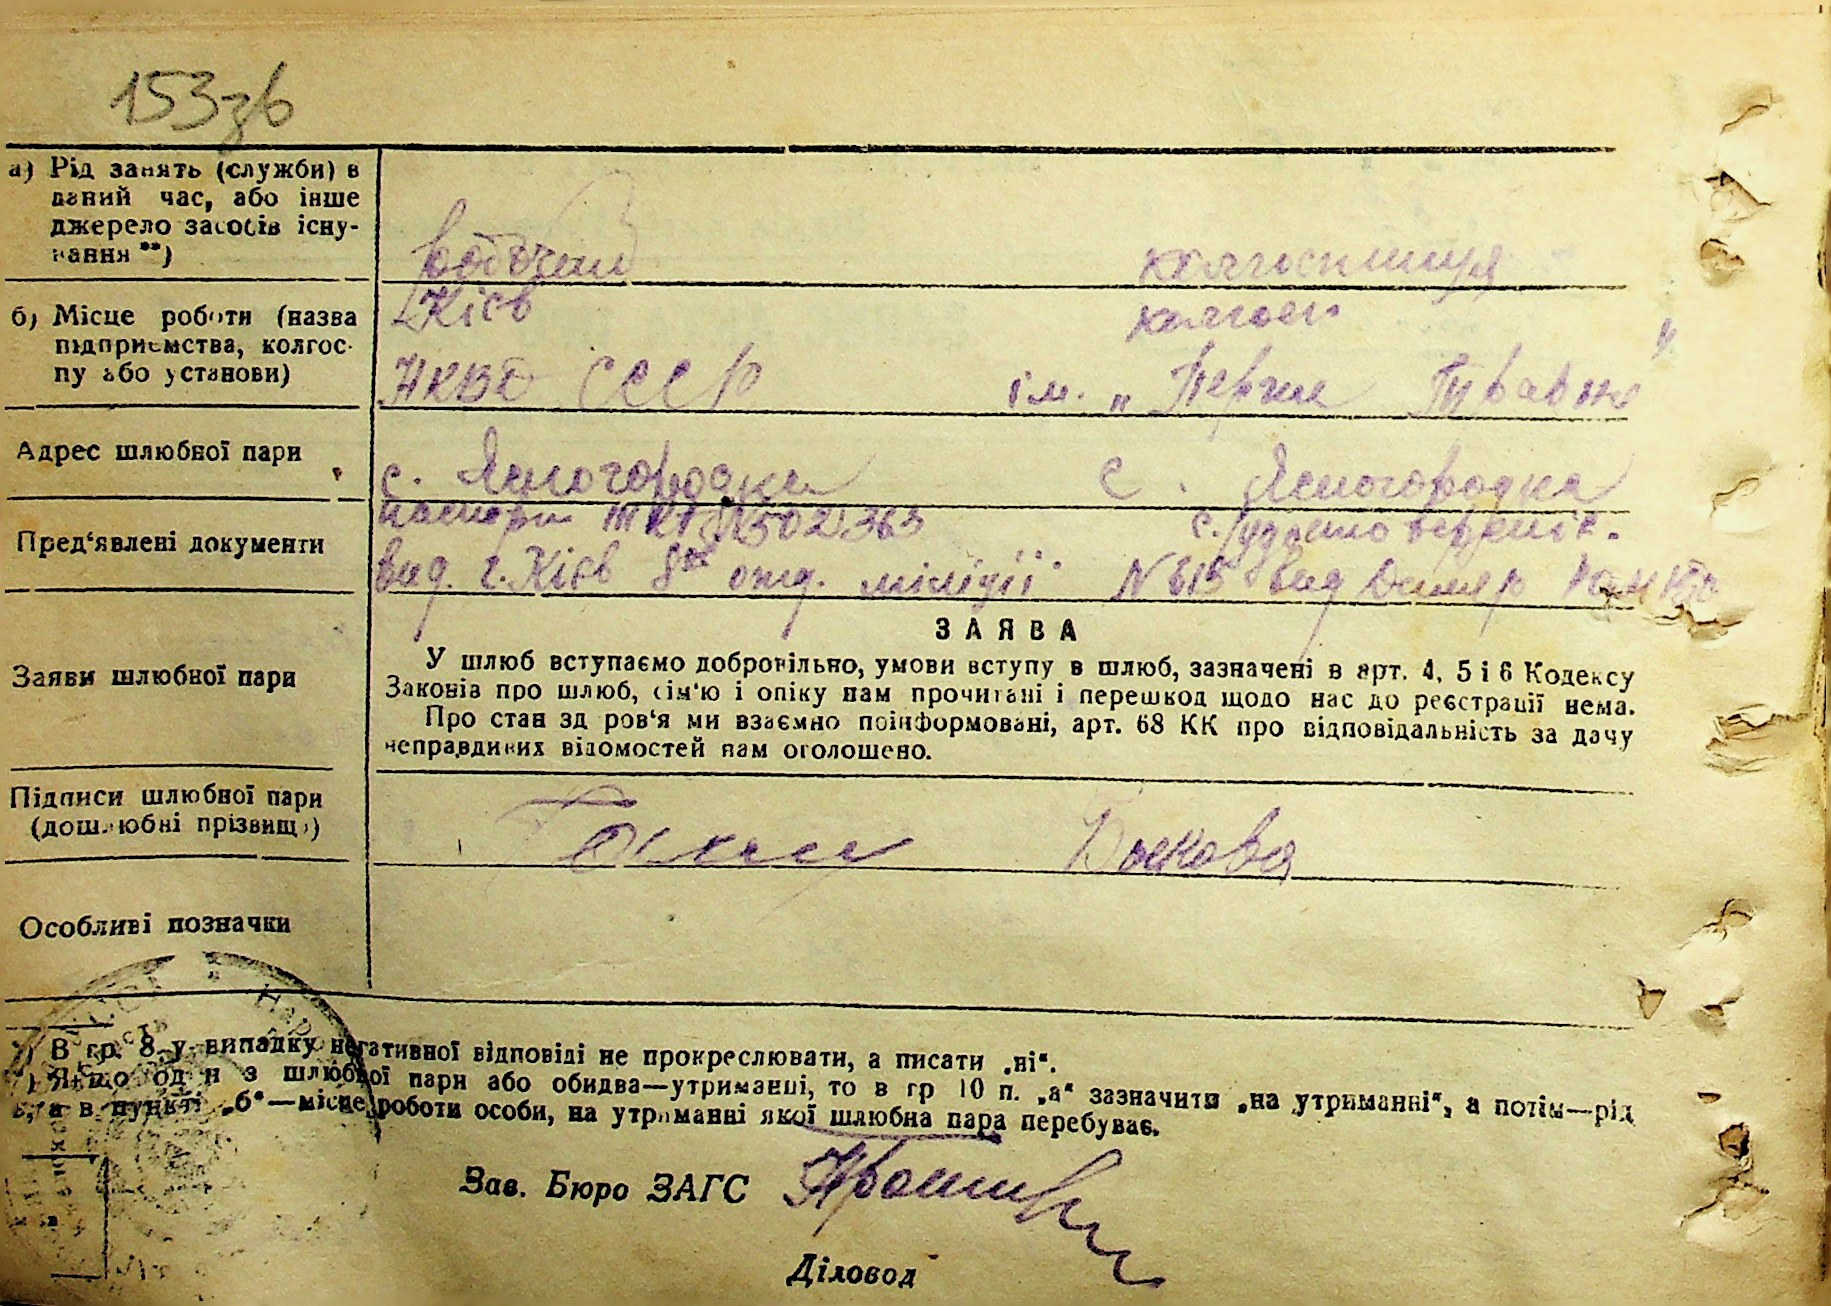 153зв
а) Рід занять (служби) в
даний час, або інше
джерело засобів існу-
вання **)
робочий
колгоспниця
б) Місце роботи (назва
підприємства, колгос-
пу або установи)
Кієв
НКВД СССР
колгосп
ім. „Перше Травня"
Адрес шлюбної пари
с. Ясногородка
с. Ясногородка
Пред'явлені документи
паспорт № 502363
вид. г. Кієв 8 отд. міліції
с. удостоверенік.
N 615 вид Димер
Заяви шлюбної пари
ЗАЯВА
У шлюб вступаємо добровільно, умови вступу в шлюб, зазначені в арт. 4, 5 і 6 Кодексу
Законів про шлюб, сім'ю і опіку нам прочитані і перешкод щодо нас до реєстрації нема.
Про стан здоров'я ми взаємно поінформовані, арт. 68 КК про відповідальність за дачу
неправдивих відомостей нам оголошено.
Підписи шлюбної пари
(дошлюбні прізвища)
Быкова
Особливі позначки
*) В гр. 8 у випадку негативної відповіді не прокреслювати, а писати „ні".
**) Якщо один з шлюбної пари або обидва—утриманці, то в гр 10 п. „а" зазначити „на утриманні", а потім—рід
а в пункті „б"—місце роботи особи, на утриманні якої шлюбна пара перебуває.
Зав. Бюро ЗАГС
Діловод